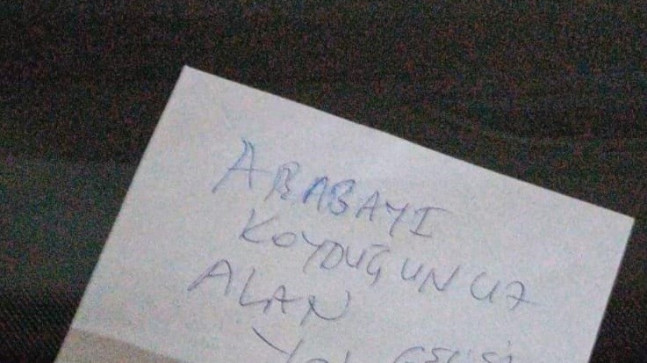 ARABAYI
KOYDUĞUNUZ
ALAN
YOL